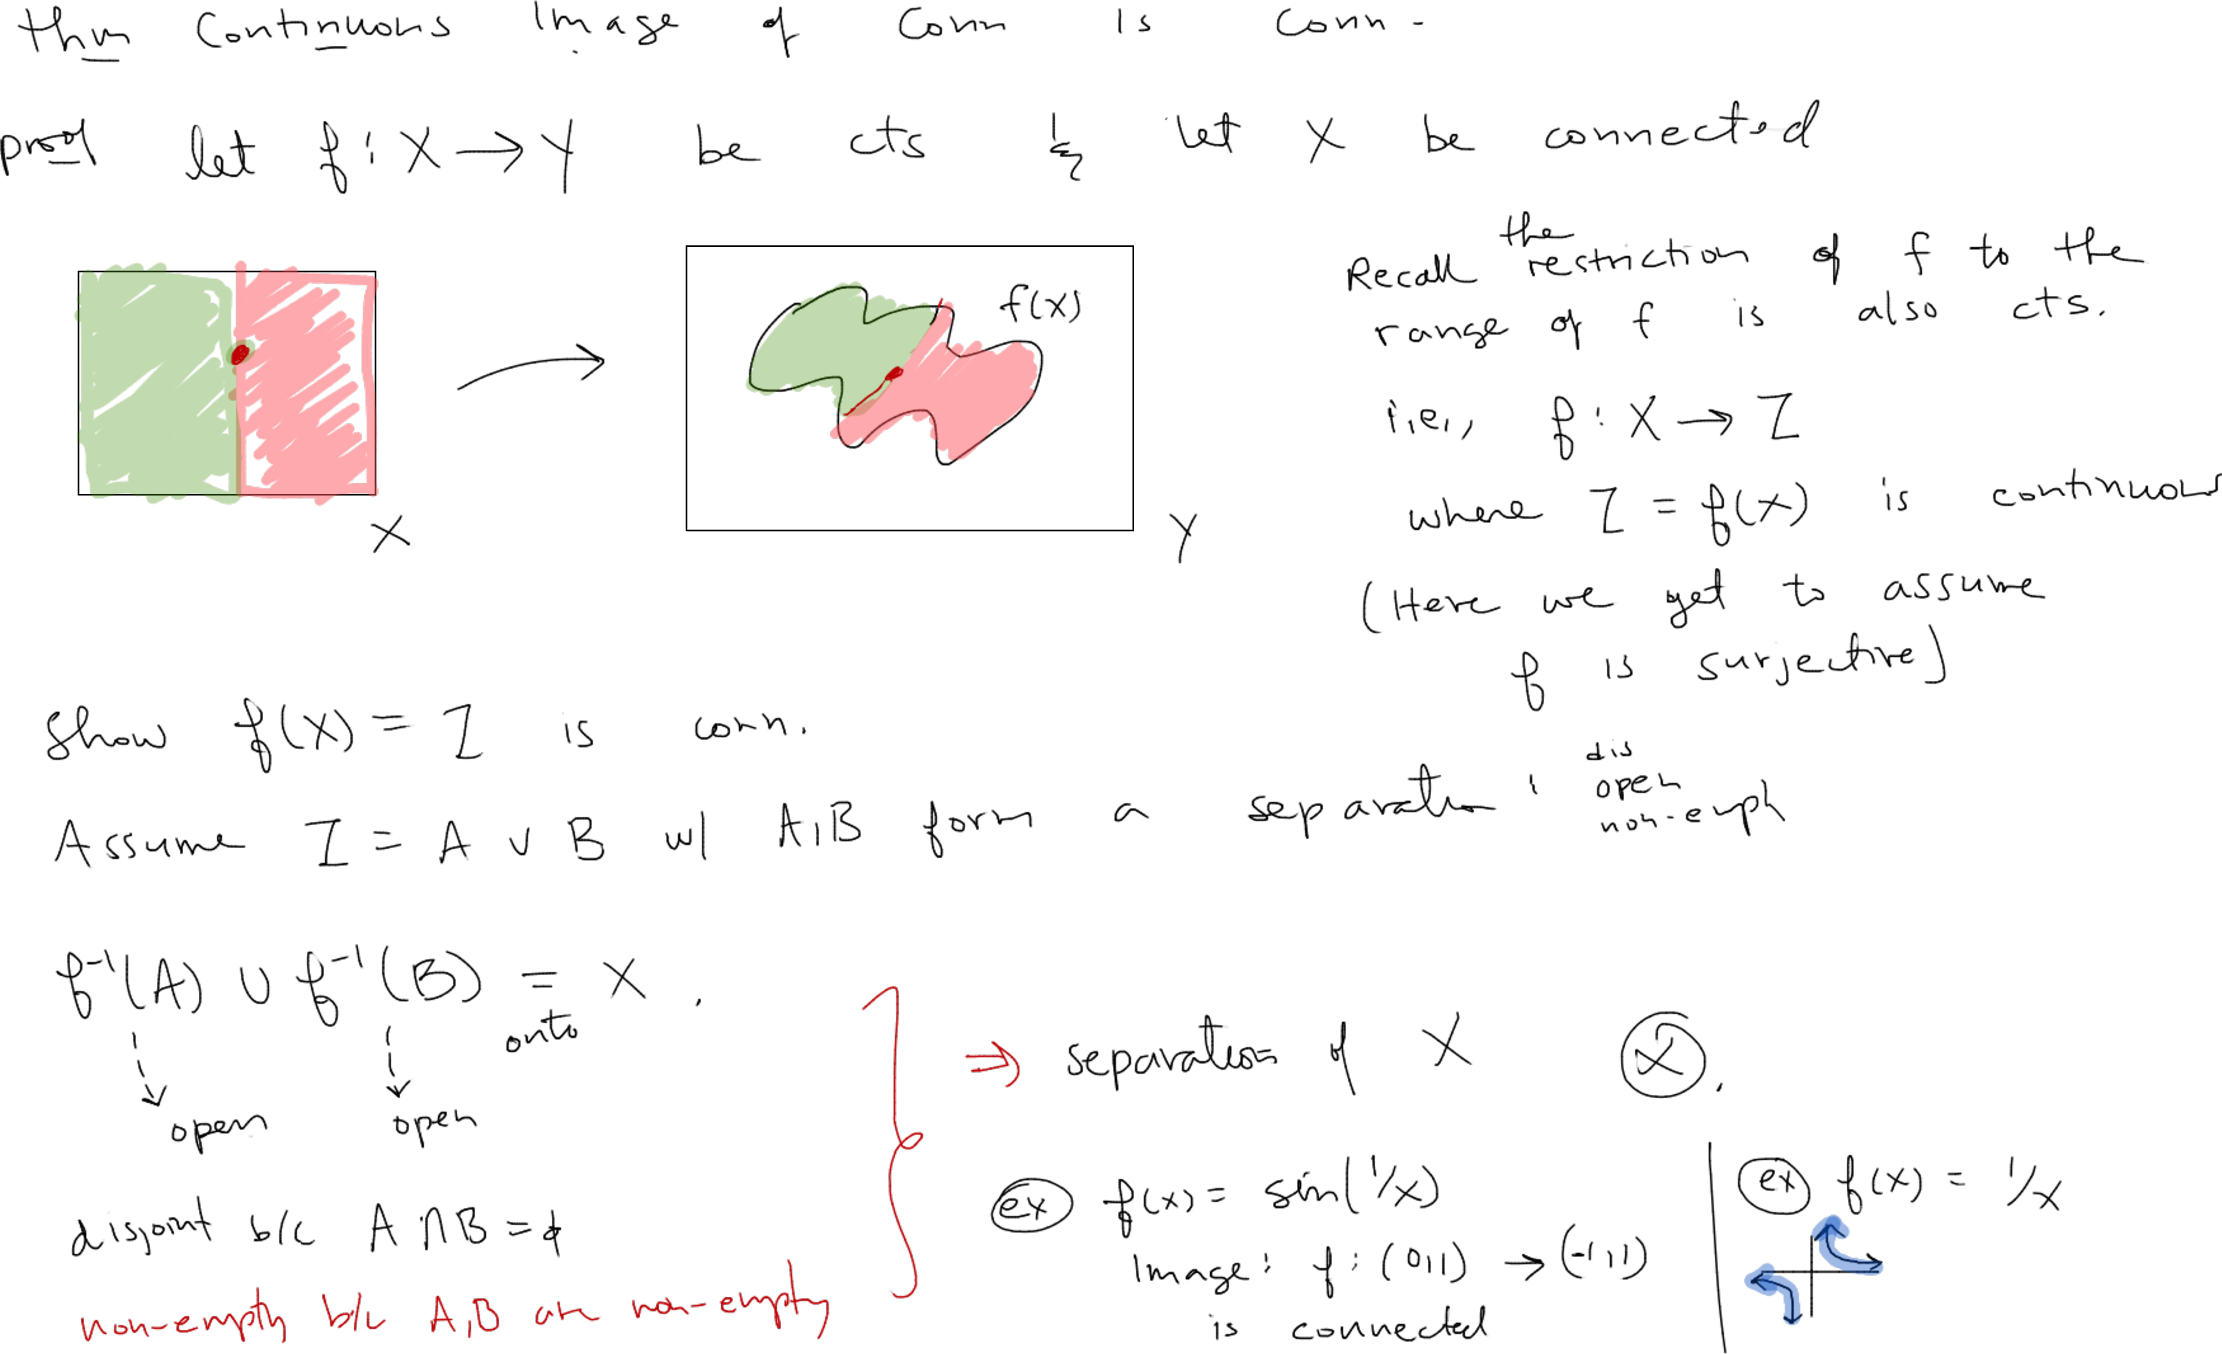 thm Continuous Image of Conn is Conn.
proof let f : X → Y be cts & let X be connected
f(X)
X
Y
Recall the restriction of f to the
range of f is also cts.
i.e., f : X → Z
where Z = f(X) is continuous
(Here we get to assume
f is surjective)
Show f(X) = Z is conn.
Assume Z = A ∪ B w/ A,B form a separation :
dis
open
non-emph
f⁻¹(A) ∪ f⁻¹(B) = X .
onto
open open
disjoint b/c A ∩ B = ϕ
non-empty b/c A,B are non-empty
⇒ separation of X
ex f(x) = sin(1/x)
Image: f : (0,1) → (-1,1)
is connected
ex f(x) = 1/x